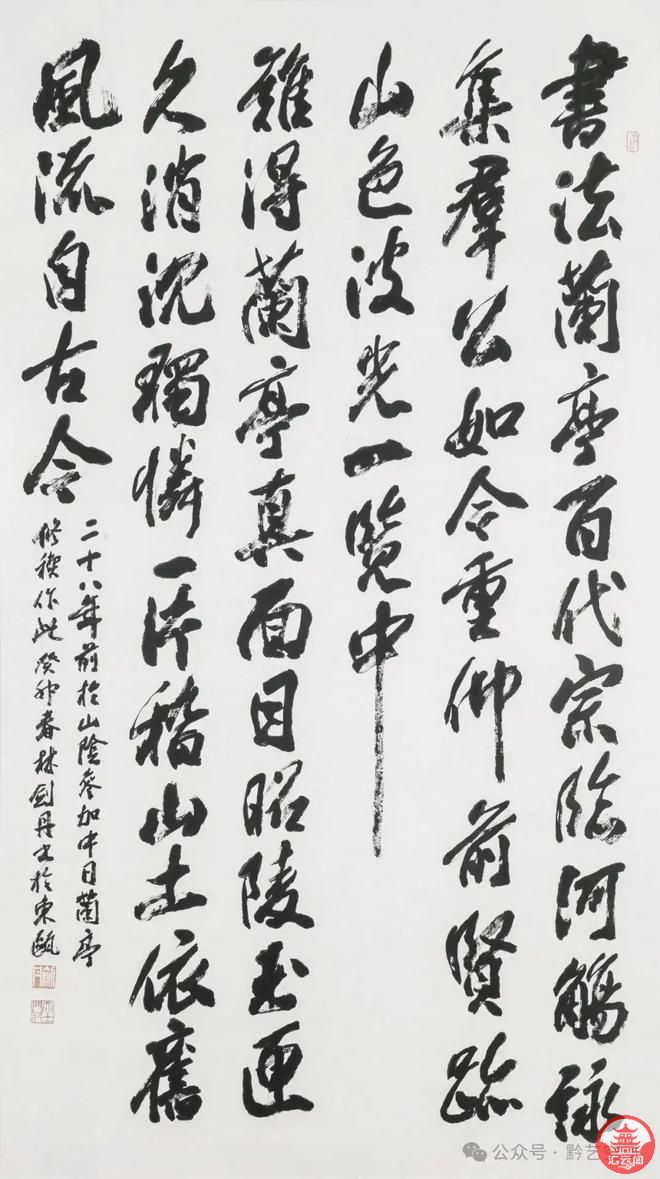 書法蘭亭百代宗臨河觴詠
集羣公如今重仰前賢跡
山色波光一覽中
難得蘭亭真面目昭陵玉匣
久消沈獨憐一片稽山土依舊
風流自古今
二十八年前於山陰參加中日蘭亭
修禊作此癸卯春林劍丹書於東甌
公众号·黔艺
汇云阁